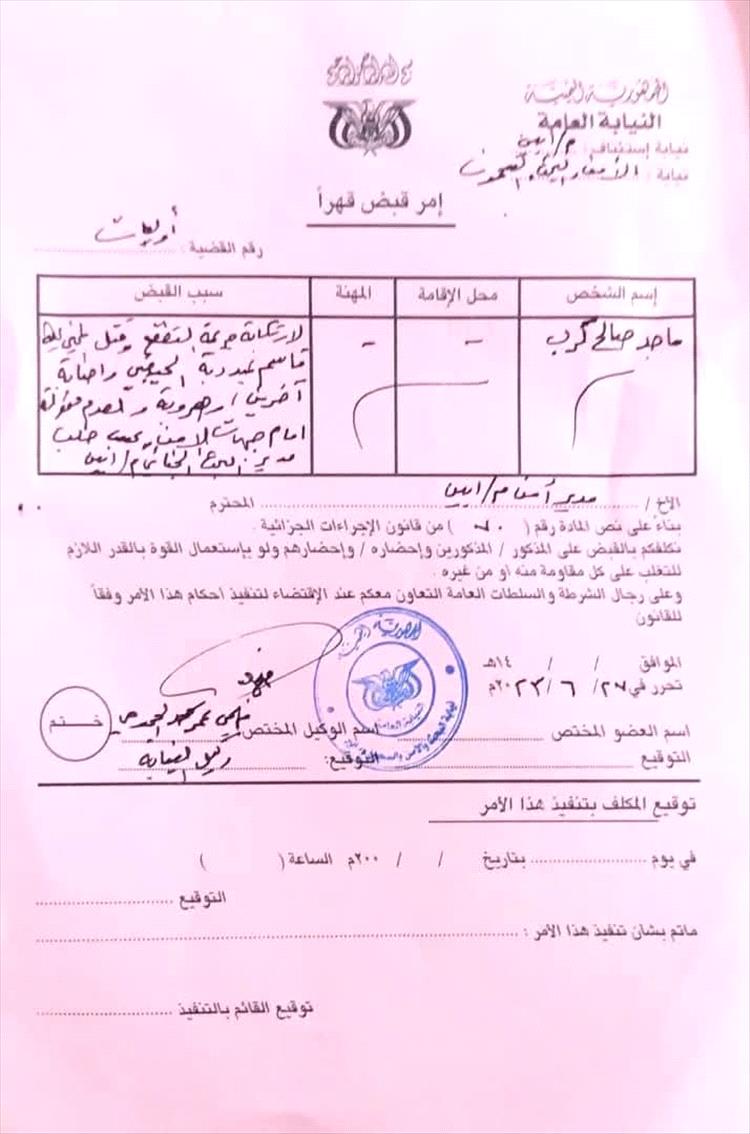 الجمهورية اليمنية
النيابة العامة
نيابة إستئناف : م/ابين
نيابة : الأمن والبحث والسجون
إمر قبض قهراً
رقم القضية : أوليات
إسم الشخص
محل الإقامة
المهنة
سبب القبض
ماجد صالح كرب
-
-
لارتكابه جريمة التقطع وقتل
قاسم واصابة
آخرين / وهروبه
امام جهات الامن بحسب طلب
مدير البحث الجنائي م/ابين
الأخ / مدير أمن م/ابين المحترم
بناءً على نص المادة رقم ( ٧٠ ) من قانون الإجراءات الجزائية .
نكلفكم بالقبض على المذكور / المذكورين وإحضاره / وإحضارهم ولو بإستعمال القوة بالقدر اللازم
للتغلب على كل مقاومة منه او من غيره .
وعلى رجال الشرطة والسلطات العامة التعاون معكم عند الإقتضاء لتنفيذ احكام هذا الأمر وفقاً
للقانون
الموافق / / ١٤هـ
تحرر في ٢٧/ ٦ /٢٠٢٣م
اسم العضو المختص
اسم الوكيل المختص
التوقيع
التوقيع: وكيل النيابة
ختم
الجمهورية اليمنية
النيابة العامة
توقيع المكلف بتنفيذ هذا الأمر
في يوم بتاريخ / / ٢٠٠م الساعة ( )
التوقيع
ماتم بشان تنفيذ هذا الأمر :
توقيع القائم بالتنفيذ